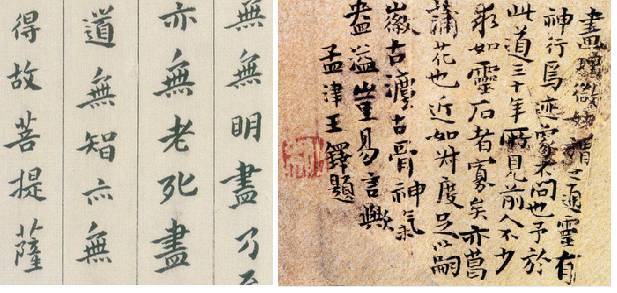 無無明盡乃至
亦無老死盡
道無智亦無
得故菩提薩
畫之通靈有
神行焉迹象不問也予於
此道三十年所見前人不少
求如靈石者寡矣亦菖
蒲花也近如對度足以嗣
徽古澹古骨神氣
盎溢豈易言歟
孟津王鐸題